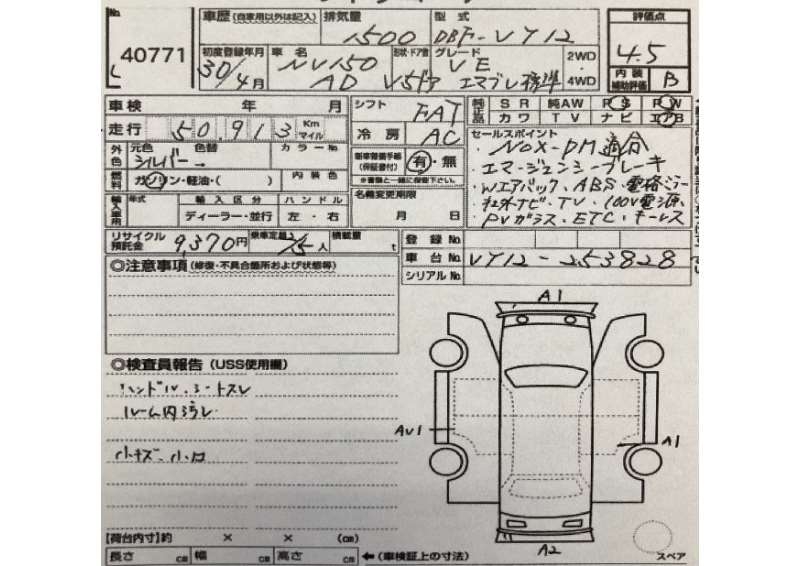 No. 40771
車歴(自家用以外は記入)
排気量 1500
型式 DBF-VY12
評価点 4.5
内装補助評価 B
初度登録年月 30/4月
車名 NV150 AD
形状・ドア数 V 5ドア
グレード VE エマブレ標準
2WD・4WD
車検 年 月
シフト FAT
純正品 SR 純AW PS PW
カワ TV ナビ エアB
走行 50,913 Km マイル
冷房 AC
セールスポイント
・NOX-PM適合
エマージェンシーブレーキ
Wエアバック、ABS・電格ミラー
社外ナビ・TV、100V電源、
PVガラス、ETC、キーレス
外色 元色 シルバー 色替 → カラーNo.
新車整備手帳(保証書付) 有・無
※書類と一緒に保管下さい。
燃料 ガソリン・軽油・( ) 内装色
名義変更期限 月 日
輸入車用 年式 輸入区分 ハンドル
ディーラー・並行 左・右
リサイクル預託金 9,370円
乗車定員 2/5人
積載量 t
登録No.
車台No. VY12-253828
シリアルNo.
◎注意事項(修復・不具合箇所および状態等)
◎検査員報告(USS使用欄)
ハンドル、シートスレ
ルーム内汚レ
小キズ、小凹
A1
AU1
A1
A2
スペア
【荷台内寸】約 × × (cm)
長さ cm 幅 cm 高さ cm ←(車検証上の寸法)